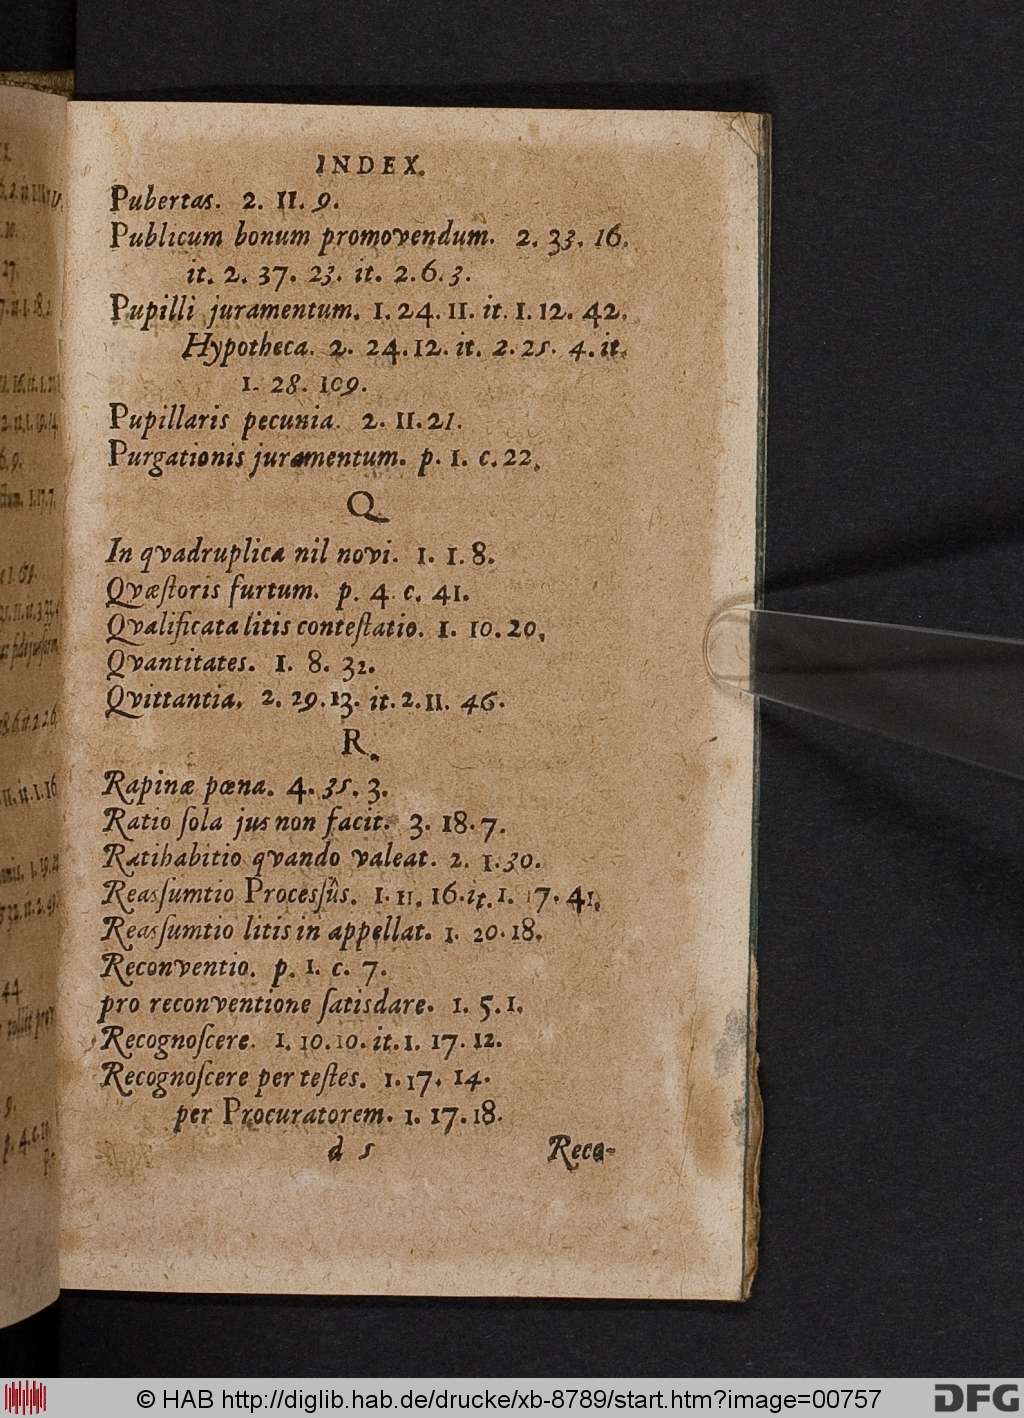 INDEX.
Pubertas. 2. 11. 9.
Publicum bonum promovendum. 2. 33. 16.
it. 2. 37. 23. it. 2. 6. 3.
Pupilli juramentum. 1. 24. 11. it. 1. 12. 42.
Hypotheca. 2. 24. 12. it. 2. 25. 4. it.
1. 28. 109.
Pupillaris pecunia. 2. 11. 21.
Purgationis juramentum. p. 1. c. 22.
Q
In qvadruplica nil novi. 1. 1. 8.
Qvæſtoris furtum. p. 4. c. 41.
Qvalificata litis conteſtatio. 1. 10. 20.
Qvantitates. 1. 8. 32.
Qvittantia. 2. 29. 13. it. 2. 11. 46.
R.
Rapinæ pœna. 4. 35. 3.
Ratio ſola jus non facit. 3. 18. 7.
Ratihabitio qvando valeat. 2. 1. 30.
Reasſumtio Procesſûs. 1. 11. 16. it. 1. 17. 41.
Reasſumtio litis in appellat. 1. 20. 18.
Reconventio. p. 1. c. 7.
pro reconventione ſatisdare. 1. 5. 1.
Recognoſcere. 1. 10. 10. it. 1. 17. 12.
Recognoſcere per teſtes. 1. 17. 14.
per Procuratorem. 1. 17. 18.
d 5 Reco-
© HAB http://diglib.hab.de/drucke/xb-8789/start.htm?image=00757
DFG